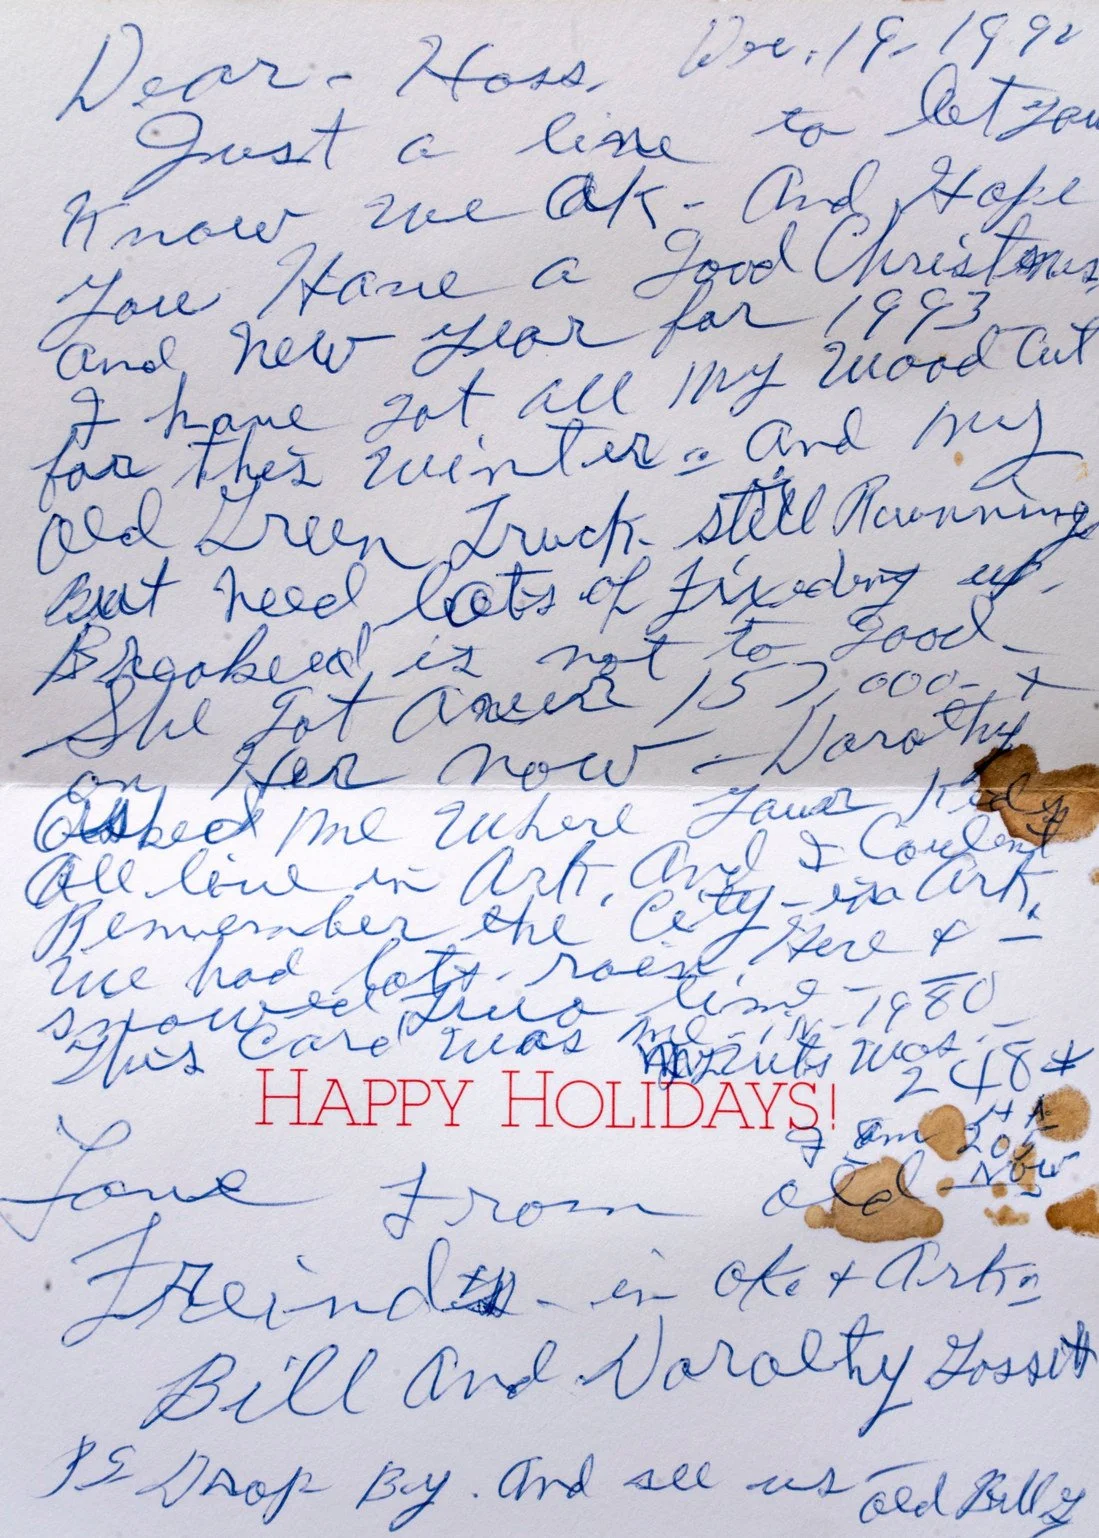 Dear - Hoss. Dec. 19 - 1992
Just a line to let you
Know we Ok - And Hope
you Have a good Christmas,
and New year for 1993
I have got all my wood cut
for this winter - And my
old Green Truck - still Running
But need lots of fixeding up.
is not to good -
She got 157,000 - +
on Her now - Dorothy
Asked me where your Kids
All live in Ark, And I Coulent
Remember the City - in Ark,
We had lots rain, Here + -
snowed two time - 1980
This Card was me - in - was
248 #
HAPPY HOLIDAYS!
I am 205 Now
Love From old
Freinds - in ok. + Ark -
Bill And Dorothy Gossett
PS Drop By. And see us - old Billy